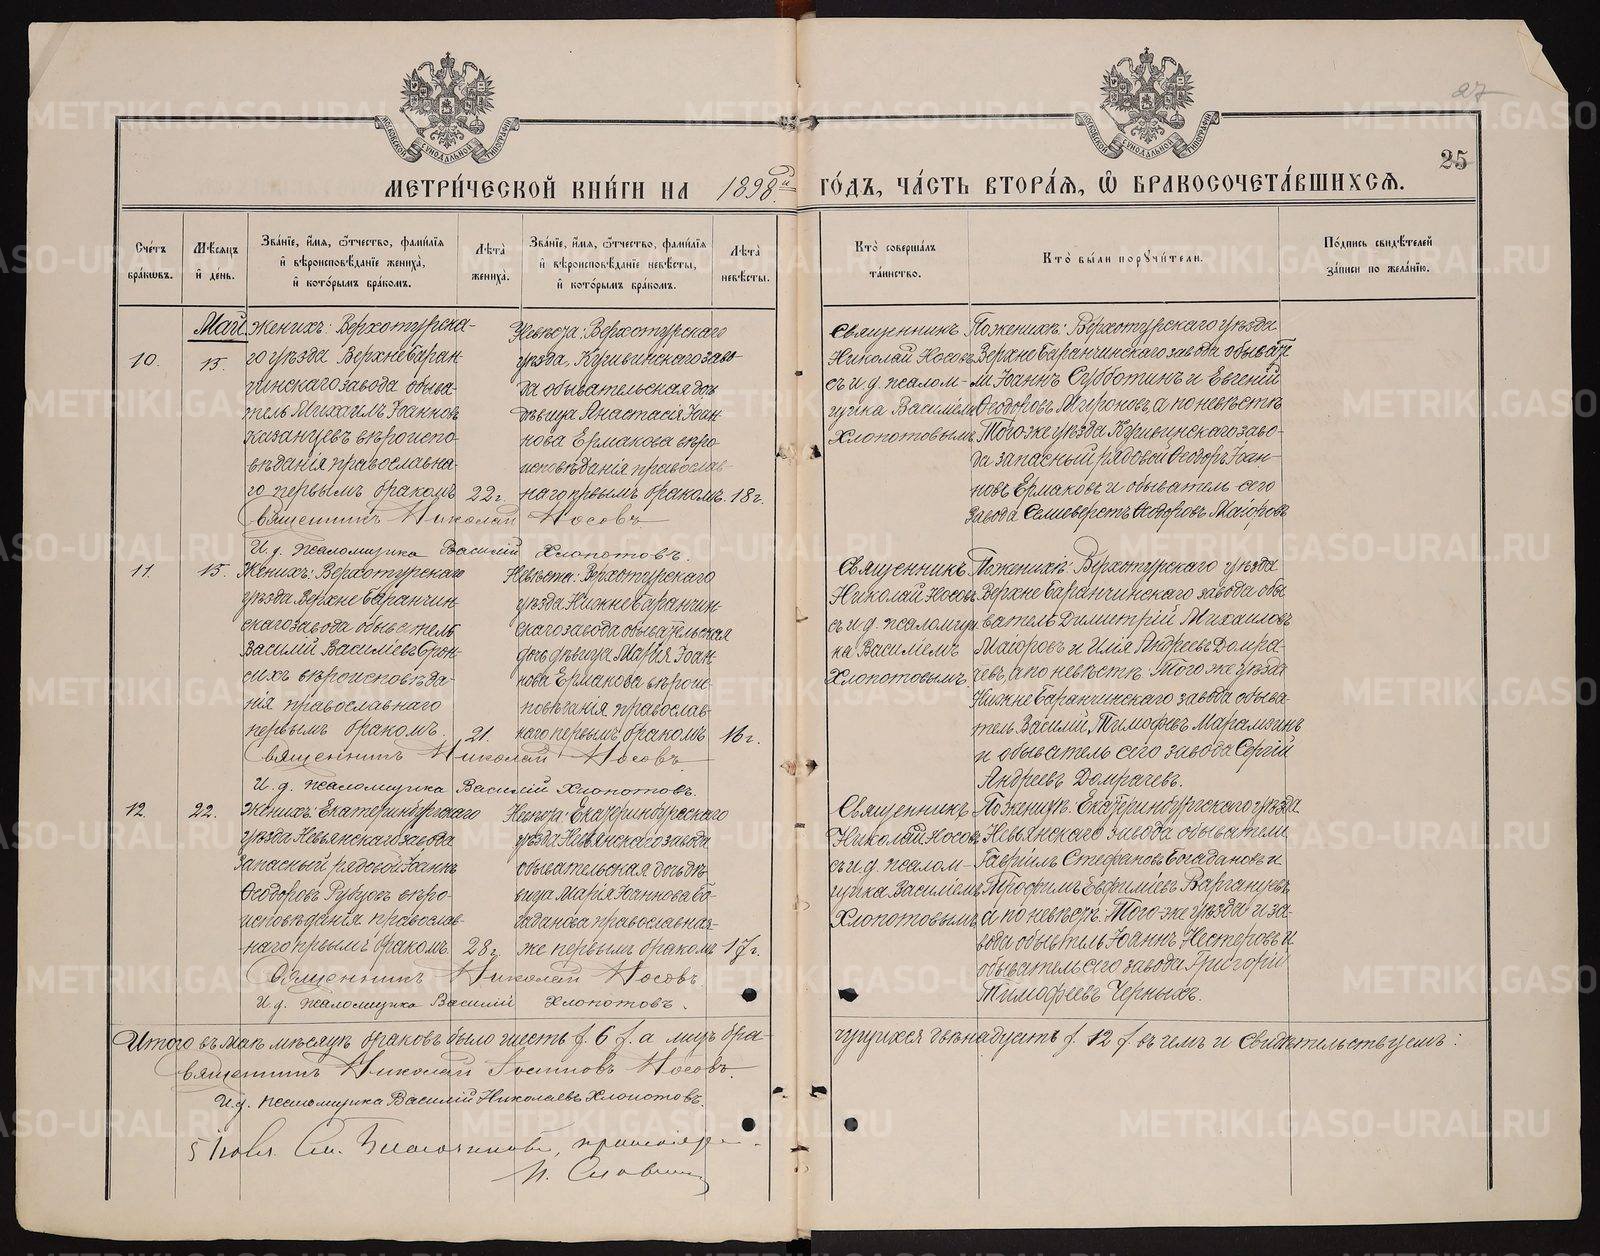 27
25
МЕТРИ́ЧЕСКОЙ КНИ́ГИ НА 1898й ГО́ДЪ, ЧА́СТЬ ВТОРА́Я, Ѽ БРАКОСОЧЕТА́ВШИХСЯ.
Сче́тъ бра́ковъ.
Мѣ́сяцъ и҆ де́нь.
Зва́нїе, и҆́мя, ѻ҆́тчество, фами́лїя
и҆ вѣроисповѣ́данїе жениха̀,
и҆ кото́рымъ бра́комъ.
Лѣта̀ жениха̀.
Зва́нїе, и҆́мя, ѻ҆́тчество, фами́лїя
и҆ вѣроисповѣ́данїе невѣ́сты,
и҆ кото́рымъ бра́комъ.
Лѣта̀ невѣ́сты.
Кто̀ соверша́лъ та́инство.
Кто̀ бы́ли поручи́тели.
По́дпись свидѣ́телей за́писи по жела́нїю.
Май
10.
15.
Женихъ: Верхотурска-
го уѣзда Верхне Баран-
чинскаго завода обыва-
тель Михаилъ Іоанновъ
Казанцевъ вѣроиспо-
вѣданія православна-
го первымъ бракомъ
22 г.
Невѣста: Верхотурскаго
уѣзда, Кушвинскаго заво-
да обывательская дочь
дѣвица Анастасія Іоан-
нова Ермакова вѣро-
исповѣданія православ-
наго первымъ бракомъ.
18 г.
Священникъ Николай Носовъ
И. д. псаломщика Василій Хлопотовъ.
Священникъ
Николай Носовъ
съ и. д. псалом-
щика Василіемъ
Хлопотовымъ
По женихѣ: Верхотурскаго уѣзда
Верхне Баранчинскаго завода обывате-
ли Іоаннъ Субботинъ и Евгеній
Ѳеодоровъ Мироновъ, а по невѣстѣ
Того-же уѣзда Кушвинскаго заво-
да запасный рядовой Ѳеодоръ Іоан-
новъ Ермаковъ и обыватель сего
завода Селиверстъ Ѳеодоровъ Маіоровъ
11.
15.
Женихъ: Верхотурскаго
уѣзда Верхне Баранчин-
скаго завода обыватель
Василій Василіевъ Брон-
скихъ вѣроисповѣда-
нія православнаго
первымъ бракомъ.
21.
Невѣста: Верхотурскаго
уѣзда Нижне Баранчин-
скаго завода обывательская
дочь дѣвица Марія Іоан-
нова Ермакова вѣроис-
повѣданія православ-
наго первымъ бракомъ
16 г.
Священникъ Николай Носовъ
И. д. псаломщика Василій Хлопотовъ.
Священникъ
Николай Носовъ
съ и. д. псаломщи-
ка Василіемъ
Хлопотовымъ.
По женихѣ: Верхотурскаго уѣзда
Верхне Баранчинскаго завода обы-
ватель Димитрій Михаиловъ
Маіоровъ и Илія Андреевъ Домра-
чевъ, а по невѣстѣ: Того же уѣзда
Нижне Баранчинскаго завода обыва-
тель Василій Тимофѣевъ
и обыватель сего завода Сергій
Андреевъ Домрачевъ.
12.
22.
Женихъ: Екатеринбургскаго
уѣзда Невьянскаго завода
запасный рядовой Іоаннъ
Ѳеодоровъ вѣро-
исповѣданія православ-
наго первымъ бракомъ.
28 г.
Невѣста: Екатеринбургскаго
уѣзда Невьянскаго завода
обывательская дочь дѣ-
вица Марія Іоаннова Бо-
гаданова православная-
же первымъ бракомъ
17 г.
Священникъ Николай Носовъ.
И. д. псаломщика Василій Хлопотовъ.
Священникъ
Николай Носовъ
съ и. д. псалом-
щика Василіемъ
Хлопотовымъ
По женихѣ: Екатеринбургскаго уѣзда
Невьянскаго завода обыватели
Гавріилъ Стефановъ Богадановъ и
Трофимъ Евфиміевъ
а по невѣстѣ: Того-же уѣзда и за-
вода обыватель Іоаннъ Нестеровъ и
обыватель сего завода Григорій
Тимофеевъ Черныхъ.
Итого въ маѣ мѣсяцѣ браковъ было шесть /6/ а лицъ бра-
чущихся двѣнадцать /12/ въ чемъ и свидѣтельствуемъ:
Священникъ Николай Іоанновъ Носовъ.
И. д. псаломщика Василій Николаевъ Хлопотовъ.